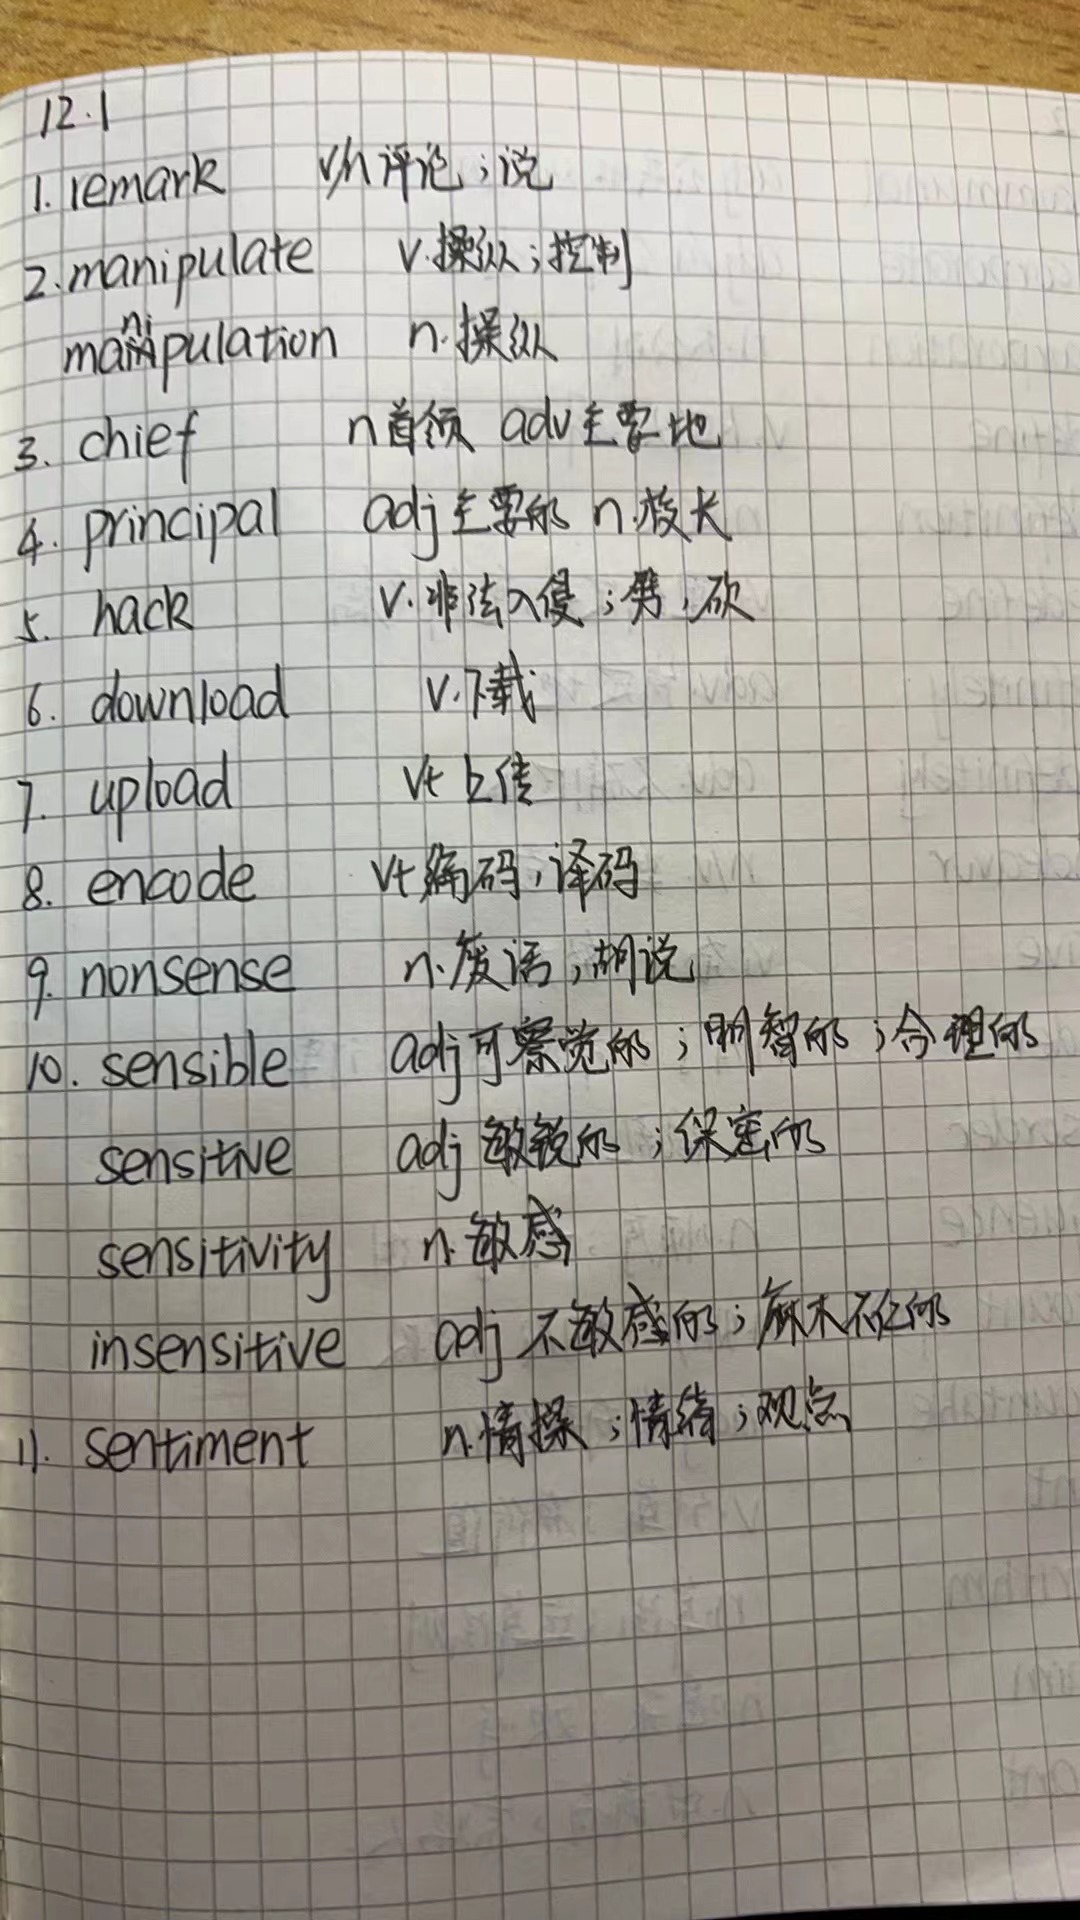 12.1
1. remark v/n 评论；说
2. manipulate v.操纵；控制
manipulation n.操纵
3. chief n首领 adv主要地
4. principal adj主要的 n.校长
5. hack v.非法入侵；劈；砍
6. download v.下载
7. upload vt上传
8. encode vt编码，译码
9. nonsense n.废话，胡说
10. sensible adj可察觉的；明智的；合理的
sensitive adj敏锐的；保密的
sensitivity n.敏感
insensitive adj 不敏感的；麻木不仁的
11. sentiment n.情操；情绪；观点